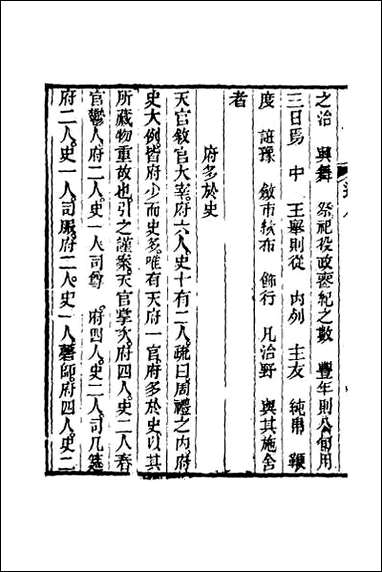 之治　與舞　祭祀役政喪紀之數　豐年則公旬用
三日焉　中　王舉則從　內列　主友　純帛　鞭
度　誑豫　敘市　布　飾行　凡治野　與其施舍
者
府多於史
天官敘官大宰。府六人。史十有二人。疏曰。周禮之內。府
史大例皆府少而史多。唯有天府一官。府多於史。以其
所藏物重故也。引之謹案。天官掌次。府四人。史二人。春
官鬱人。府二人。史一人。司尊　府四人。史二人。司几筵
府二人。史一人。司服。府二人。史一人。磬師。府四人。史二